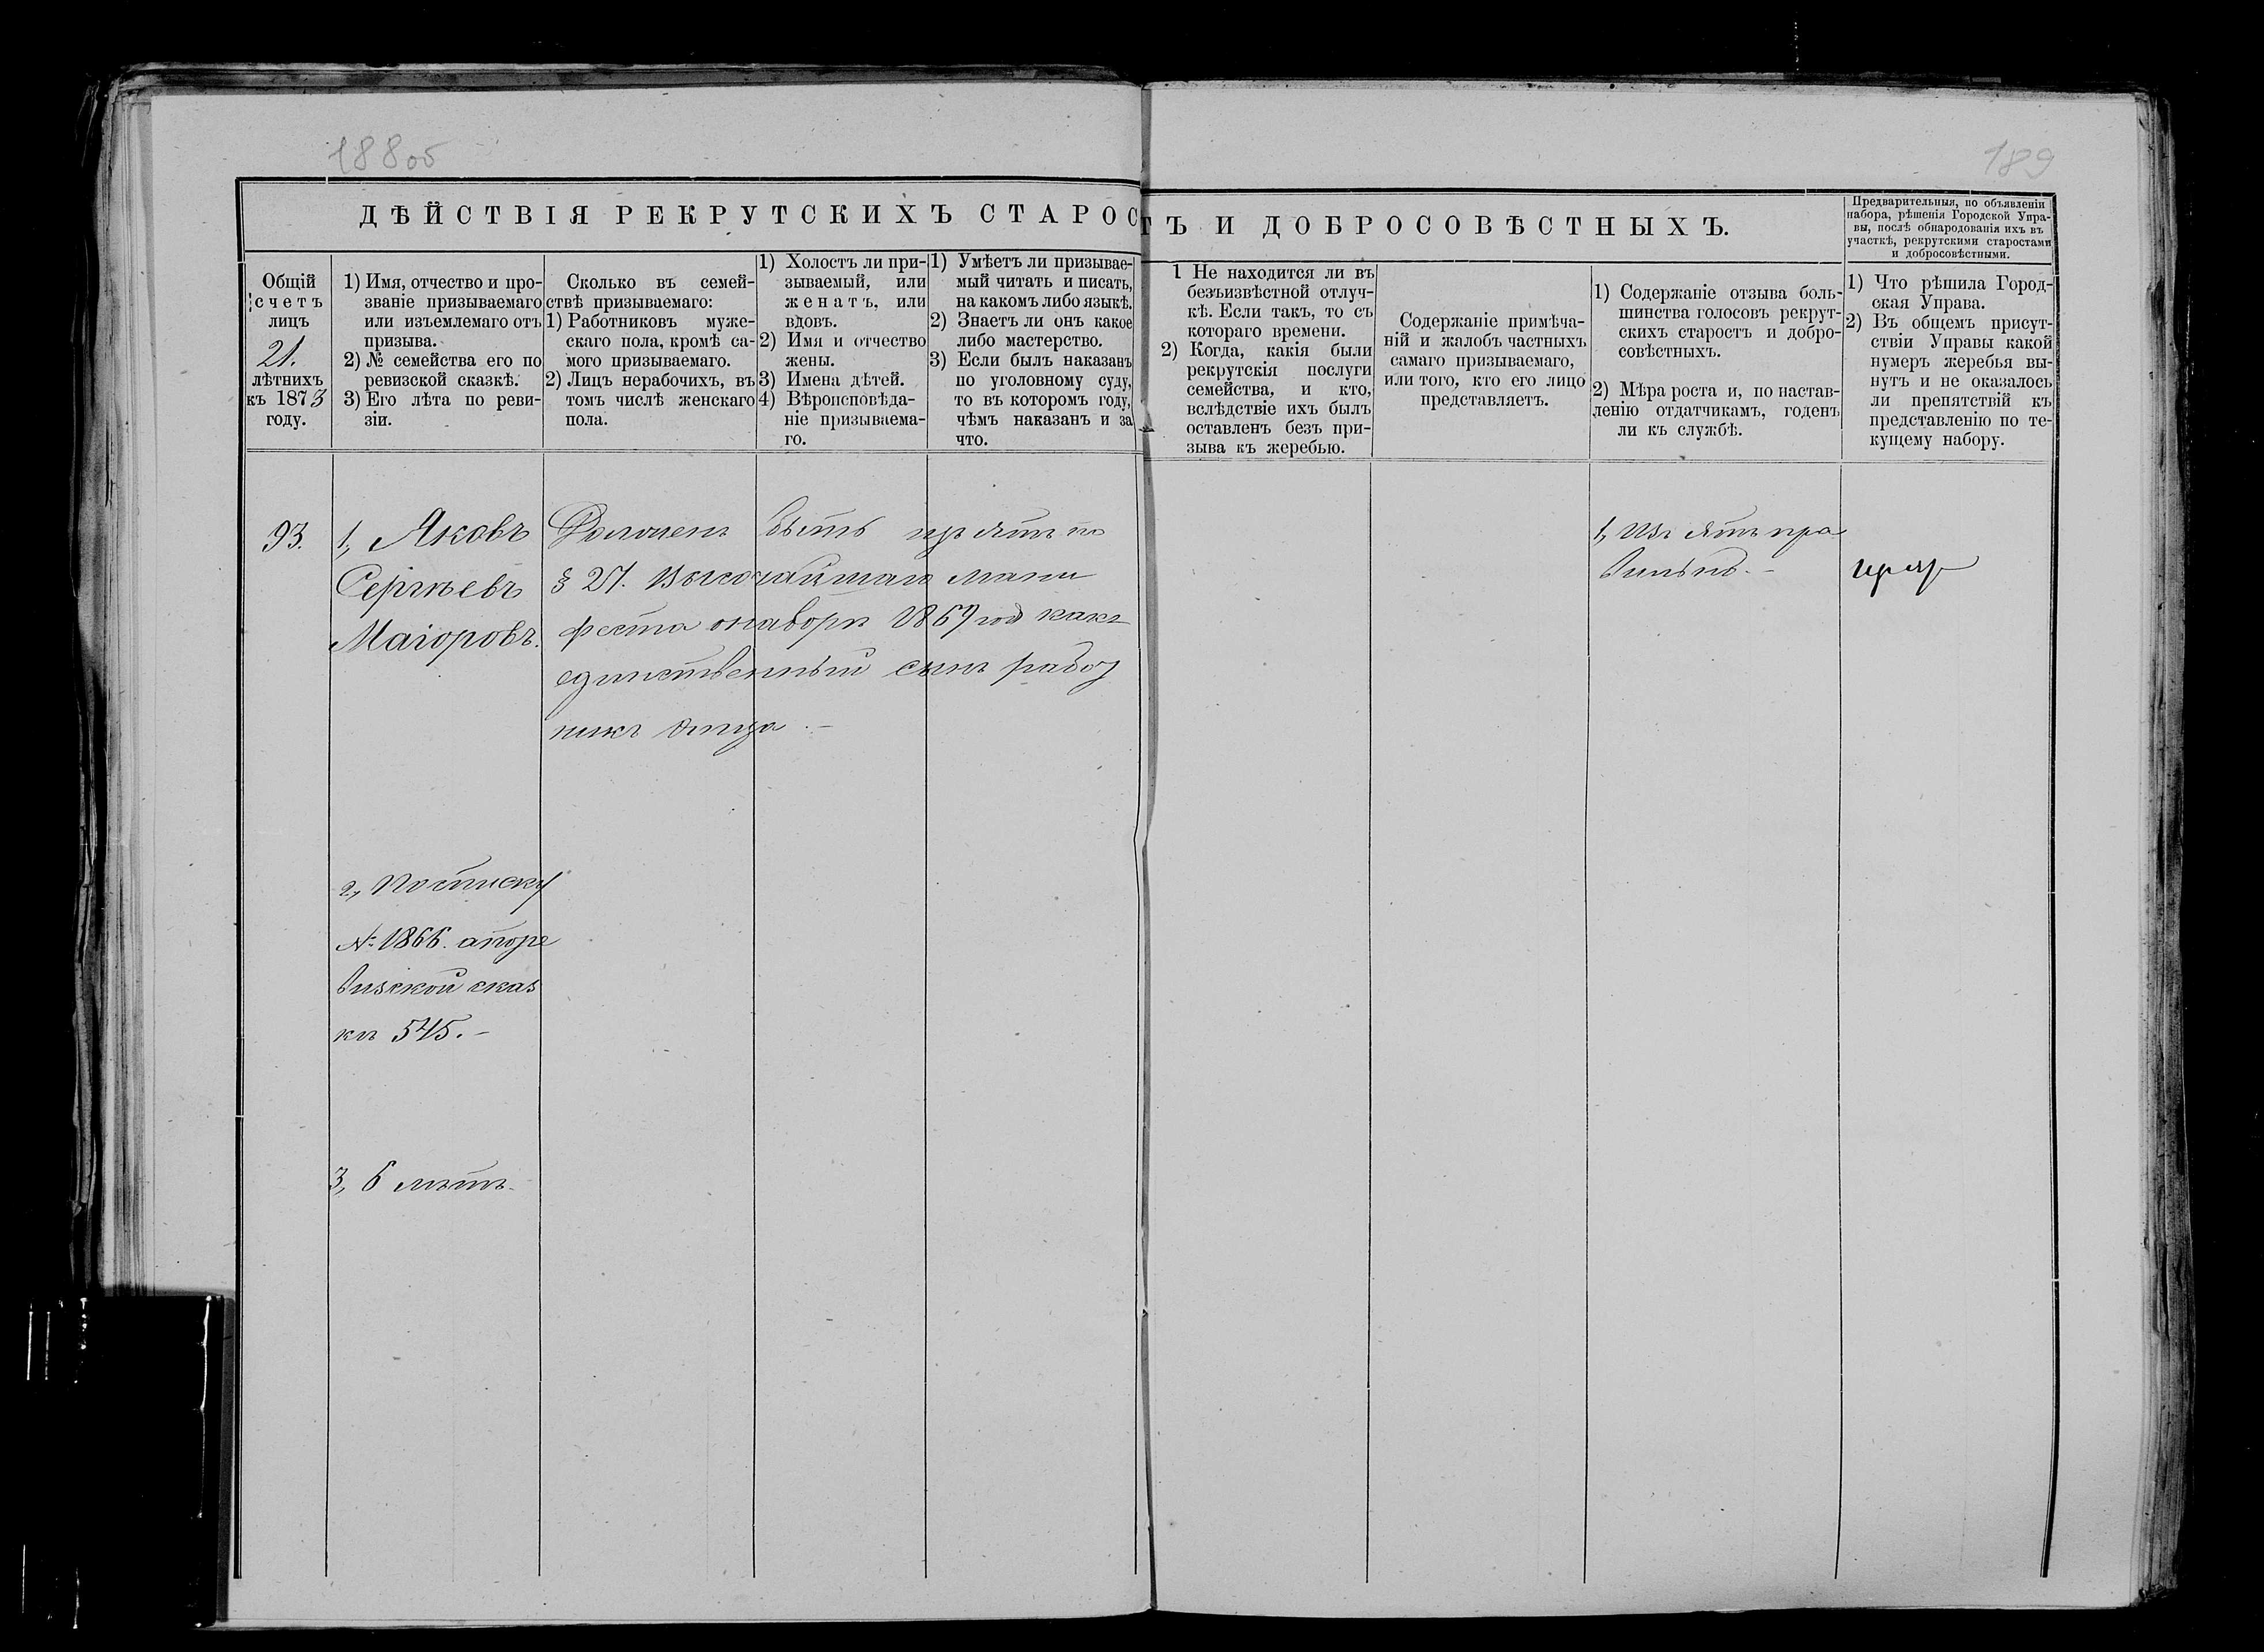 188об
189
ДѢЙСТВІЯ РЕКРУТСКИХЪ СТАРОСТЪ И ДОБРОСОВѢСТНЫХЪ.
Предварительныя, по объявленіи
набора, рѣшенія Городской Упра-
вы, послѣ обнародованія ихъ въ
участкѣ, рекрутскими старостами
и добросовѣстными.
Общій
счетъ
лицъ
21.
лѣтнихъ
къ 1873
году.
1) Имя, отчество и про-
званіе призываемаго
или изъемлемаго отъ
призыва.
2) № семейства его по
ревизской сказкѣ.
3) Его лѣта по реви-
зіи.
Сколько въ семей-
ствѣ призываемаго:
1) Работниковъ муже-
скаго пола, кромѣ са-
мого призываемаго.
2) Лицъ нерабочихъ, въ
томъ числѣ женскаго
пола.
1) Холостъ ли при-
зываемый, или
женатъ, или
вдовъ.
2) Имя и отчество
жены.
3) Имена дѣтей.
4) Вѣроисповѣда-
ніе призываема-
го.
1) Умѣетъ ли призывае-
мый читать и писать,
на какомъ либо языкѣ.
2) Знаетъ ли онъ какое
либо мастерство.
3) Если былъ наказанъ
по уголовному суду,
то въ которомъ году,
чѣмъ наказанъ и за
что.
1 Не находится ли въ
безъизвѣстной отлуч-
кѣ. Если такъ, то съ
котораго времени.
2) Когда, какія были
рекрутскія послуги
семейства, и кто,
вслѣдствіе ихъ былъ
оставленъ безъ при-
зыва къ жеребью.
Содержаніе примѣча-
ній и жалобъ частныхъ
самаго призываемаго,
или того, кто его лицо
представляетъ.
1) Содержаніе отзыва боль-
шинства голосовъ рекрут-
скихъ старостъ и добро-
совѣстныхъ.
2) Мѣра роста и, по настав-
ленію отдатчикамъ, годенъ
ли къ службѣ.
1) Что рѣшила Город-
ская Управа.
2) Въ общемъ присут-
ствіи Управы какой
нумеръ жеребья вы-
нутъ и не оказалось
ли препятствій къ
представленію по те-
кущему набору.
93.
1, Яковъ
Сергѣевъ
Маіоровъ.
Долженъ быть изъятъ по
§ 27. Высочайшаго мани
феста о наборѣ 1869 год какъ
единственный сынъ работ
никъ отца. —
1, Изъятъ пра
вильно. —
2, По списку
№ 1866. а по ре
визской сказ
кѣ 545. —
3, 6 лѣтъ.